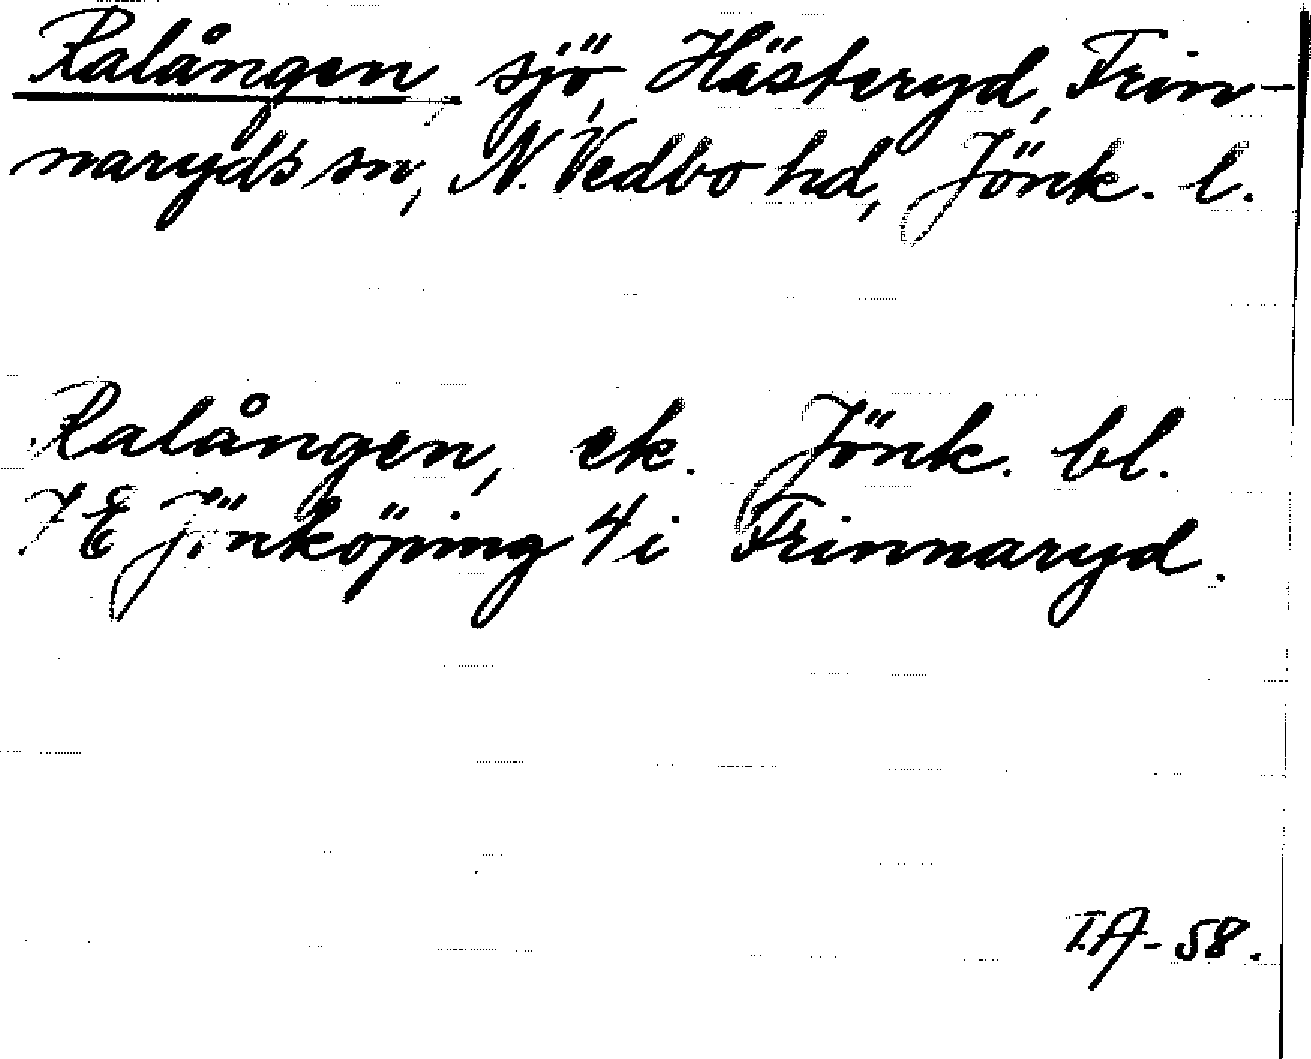 Ralången, sjö, Hästeryd, Frin-
naryds sn, N. Vedbo hd, Jönk. l.
Ralången, ek. Jönk. bl.
7 E Jönköping 4 i Frinnaryd.
T.A-58.